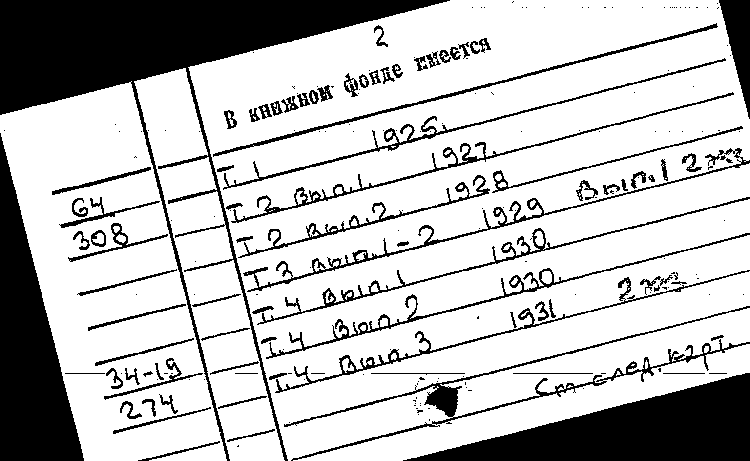 2
В книжном фонде имеется
Т. 1 1925.
64 Т. 2 вып. 1. 1927.
308 Т. 2 вып. 2. 1928
Т. 3 вып. 1-2 1929 Вып. 1 2 экз
Т. 4 вып. 1 1930.
Т. 4 вып. 2 1930.
34-19 Т. 4 вып. 3 1931. 2 экз
274
См след. карт.